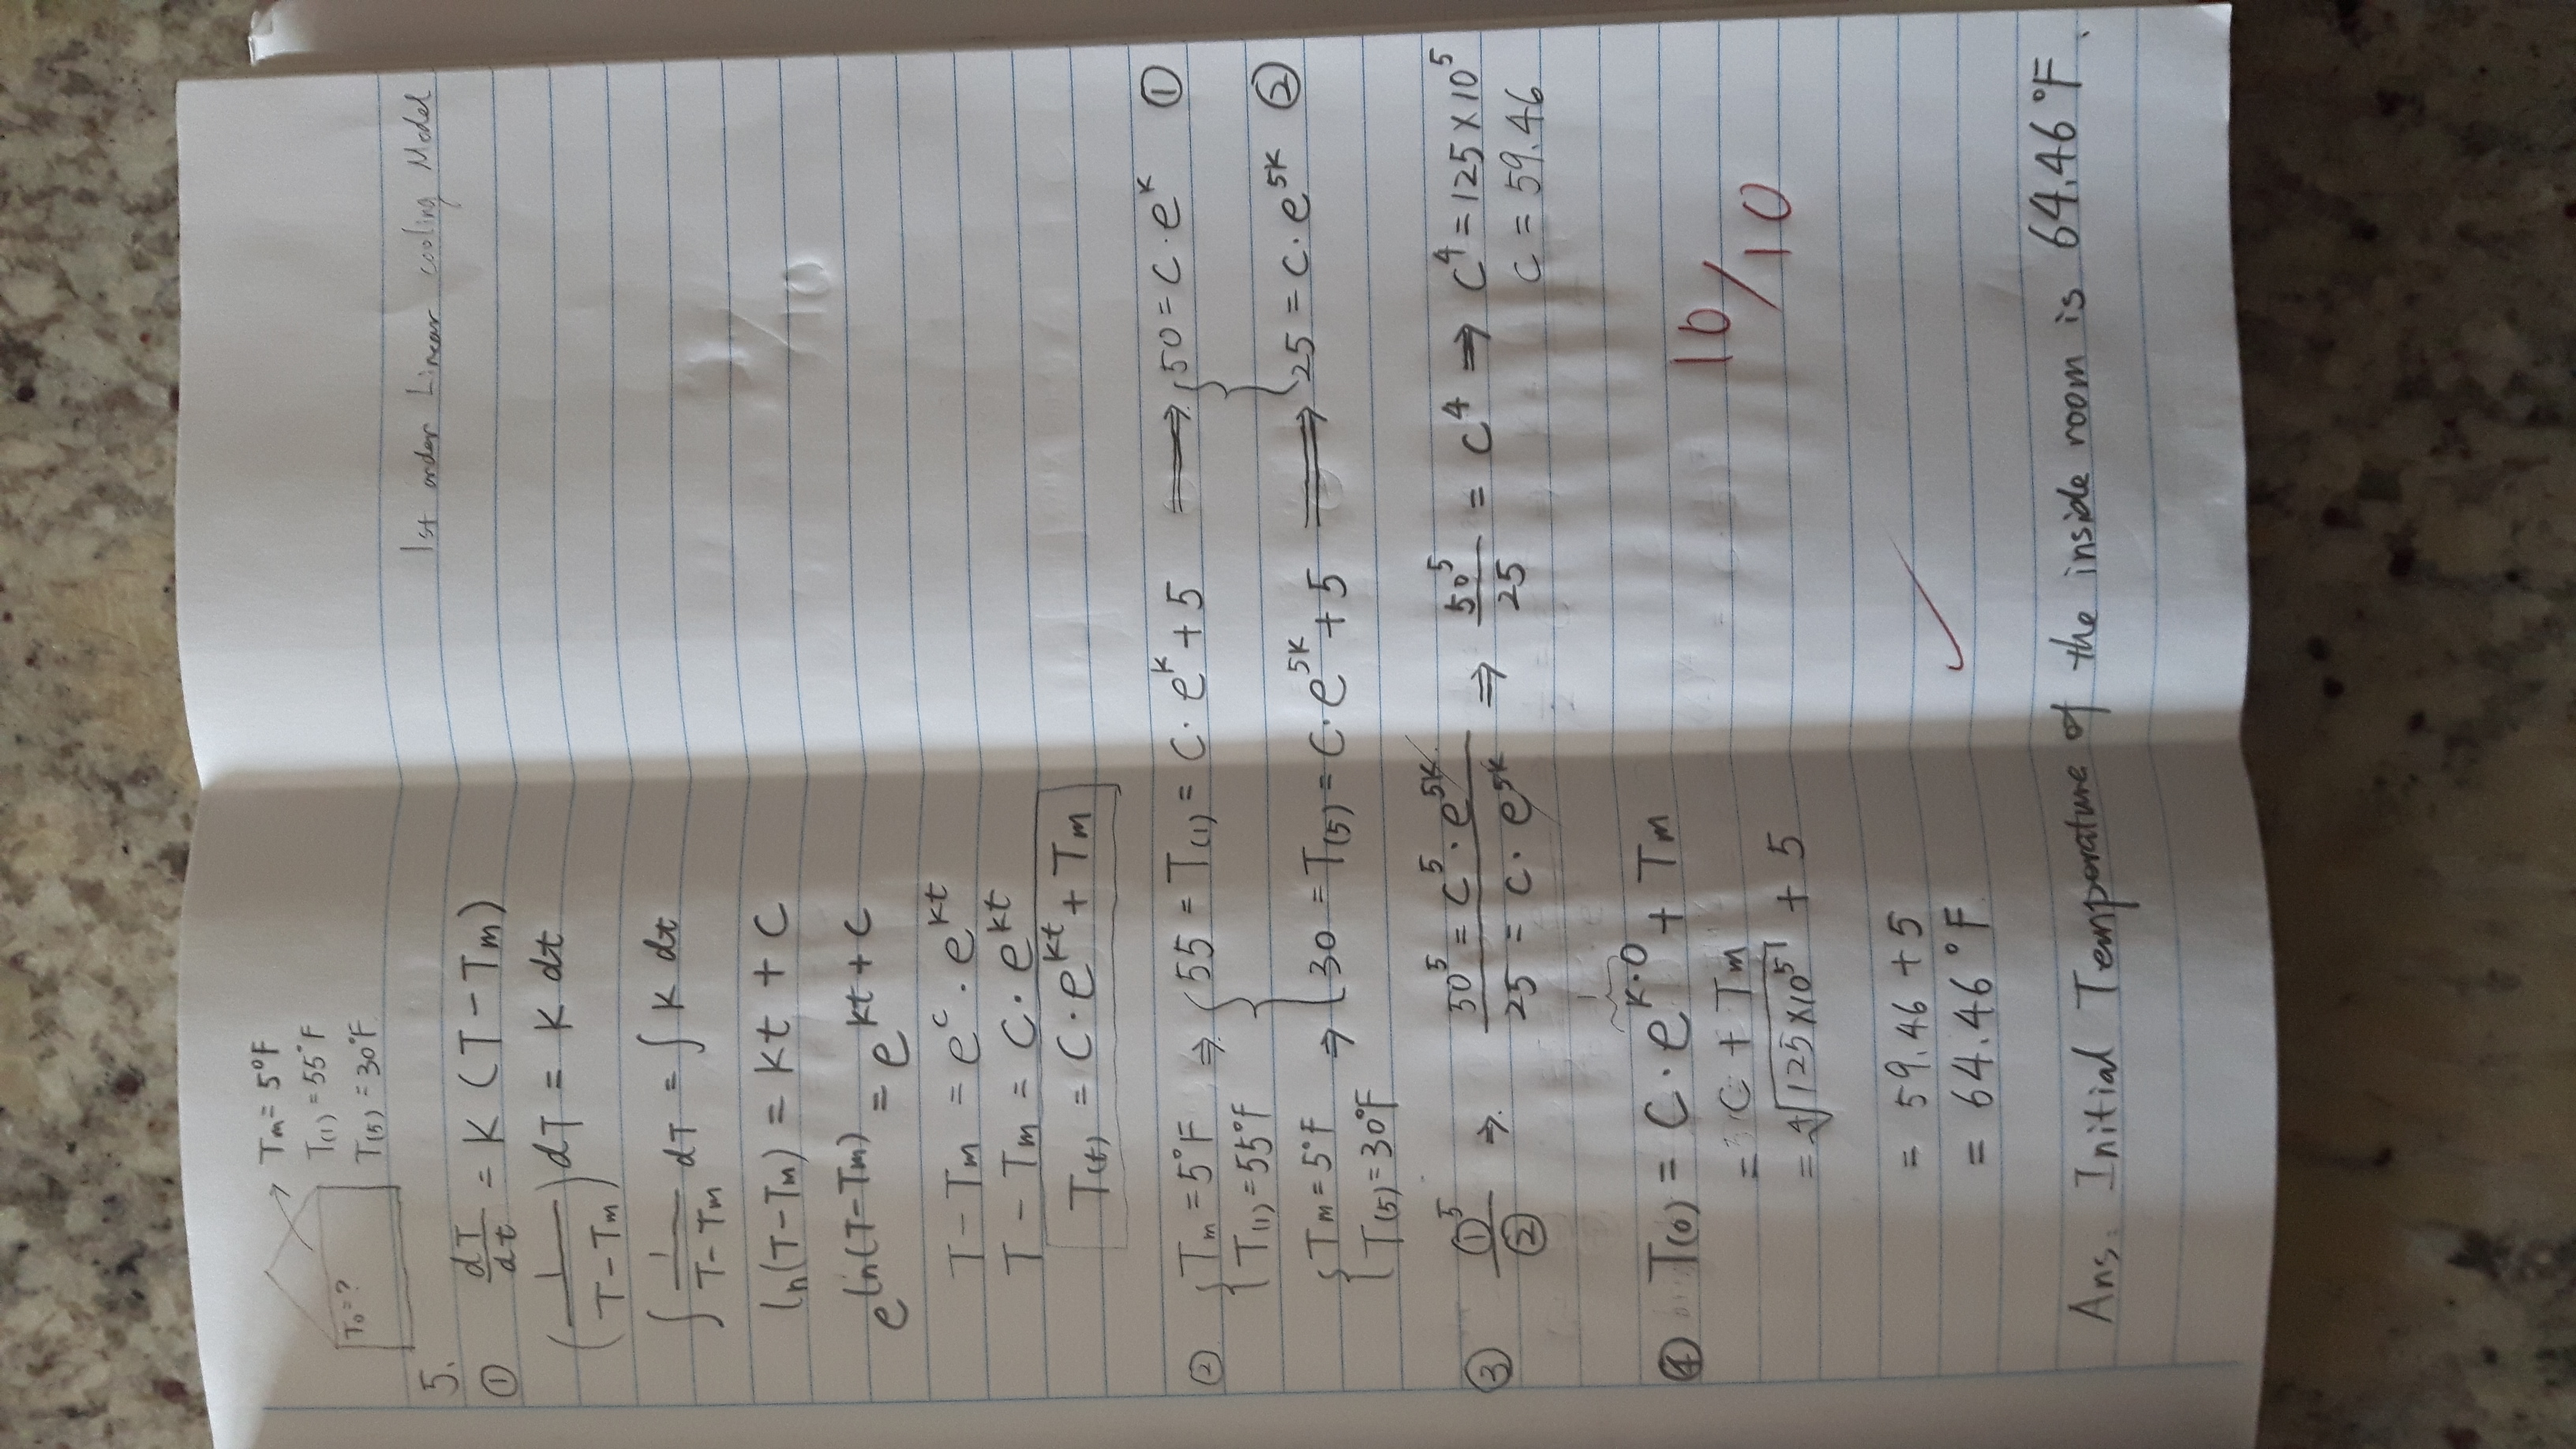 Tm = 5°F
T(1) = 55°F
T0 = ?
T(5) = 30°F
1st order Linear cooling Model
5.
① dT/dt = K (T - Tm)
(1/(T - Tm)) dT = K dt
∫ 1/(T - Tm) dT = ∫ K dt
ln(T - Tm) = Kt + C
e^ln(T - Tm) = e^(kt + c)
T - Tm = e^c · e^kt
T - Tm = C · e^kt
T(t) = C · e^kt + Tm
② { Tm = 5°F ⇒ { 55 = T(1) = C · e^k + 5 ⟹ { 50 = C · e^k ①
{ T(1) = 55°F
{ Tm = 5°F ⇒ { 30 = T(5) = C · e^5k + 5 ⟹ { 25 = C · e^5k ②
{ T(5) = 30°F
③ ①^5/② ⇒ 50^5 = C^5 · e^5k / 25 = C · e^5k ⇒ 50^5/25 = C^4 ⇒ C^4 = 125 × 10^5
C = 59.46
④ T(0) = C · e^(k·0) + Tm
1
= C + Tm
10/10
= ∜(125 × 10^5) + 5
= 59.46 + 5
= 64.46°F
Ans: Initial Temporature of the inside room is 64.46°F.